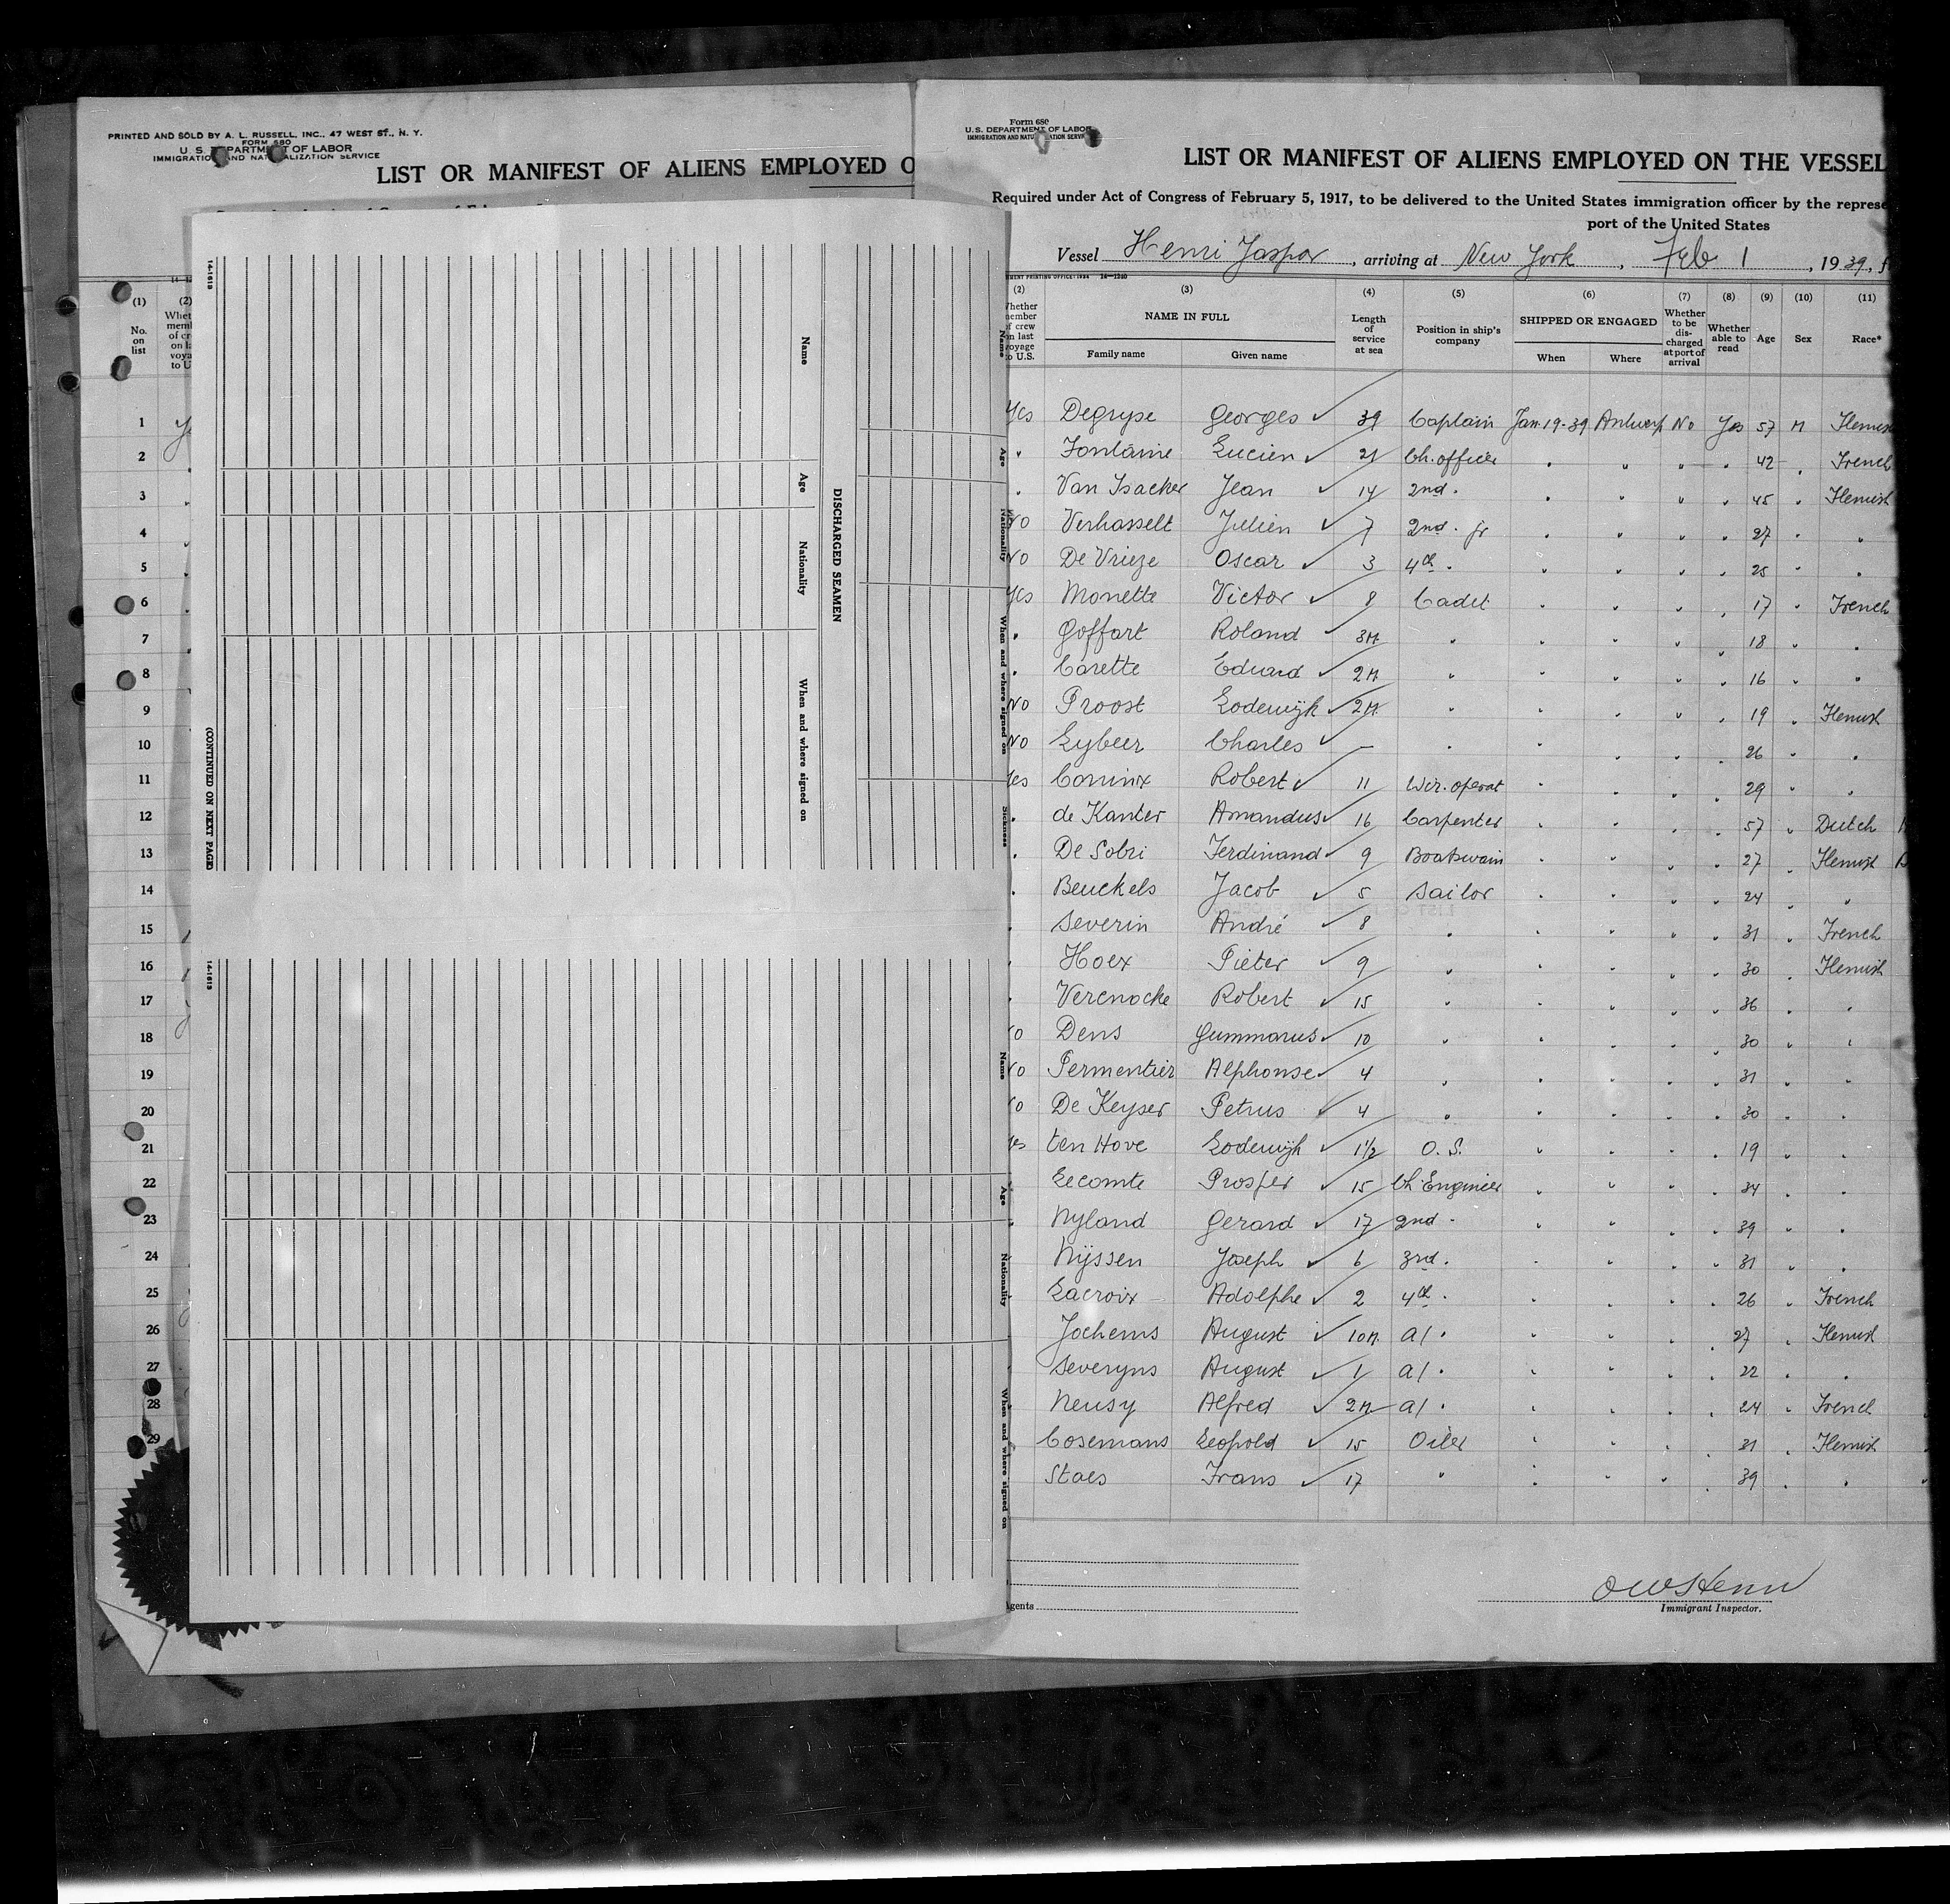 PRINTED AND SOLD BY A. L. RUSSELL, INC., 47 WEST ST., N. Y.
FORM 680
U. S. DEPARTMENT OF LABOR
IMMIGRATION AND NATURALIZATION SERVICE
LIST OR MANIFEST OF ALIENS EMPLOYED O
(1) (2)
No. on list
1
2
3
4
5
6
7
8
9
10
11
12
13
14
15
16
17
18
19
20
21
22
23
24
25
26
27
28
29
14-1613
(CONTINUED ON NEXT PAGE)
Name
Age
Nationality
When and where signed on
DISCHARGED SEAMEN
Name
Age
Nationality
When and where signed on
Sickness
14-1613
Name
Age
Nationality
When and where signed on
Form 680
U.S. DEPARTMENT OF LABOR
IMMIGRATION AND NATURALIZATION SERVICE
LIST OR MANIFEST OF ALIENS EMPLOYED ON THE VESSEL
Required under Act of Congress of February 5, 1917, to be delivered to the United States immigration officer by the represe
port of the United States
Vessel Henri Jaspar, arriving at New York, Feb 1, 1939, f
(2) (3) (4) (5) (6) (7) (8) (9) (10) (11)
Whether member of crew on last voyage to U.S. NAME IN FULL Length of service at sea Position in ship's company SHIPPED OR ENGAGED Whether to be discharged at port of arrival Whether able to read Age Sex Race*
Family name Given name When Where
Yes Degryse Georges 39 Captain Jan-19-39 Antwerp No Yes 57 M Flemish
" Fontaine Lucien 21 Ch. officer " " " " 42 " French
" Van Isacker Jean 14 2nd " " " " " 45 " Flemish
No Verhasselt Julien 7 2nd " jr " " " " 27 " "
No De Vrieze Oscar 3 4th " " " " " 25 " "
Yes Monette Victor 8 Cadet " " " " 17 " French
" Goffart Roland 3M " " " " " 18 " "
" Carette Eduard 2M " " " " " 16 " "
No Proost Lodewijk 2M " " " " " 19 " Flemish
No Lybeer Charles — " " " " " 26 " "
Yes Coninx Robert 11 Wir. operat " " " " 29 " "
" de Kanter Amandus 16 Carpenter " " " " 57 " Dutch
" De Sobri Ferdinand 9 Boatswain " " " " 27 " Flemish
" Beuckels Jacob 5 Sailor " " " " 24 " "
" Severin André 8 " " " " " 31 " French
" Hoex Pieter 9 " " " " " 30 " Flemish
" Vercnocke Robert 15 " " " " " 36 " "
No Dens Gummarus 10 " " " " " 30 " "
No Permentier Alphonse 4 " " " " " 31 " "
No De Keyser Petrus 4 " " " " " 30 " "
Yes ten Hove Lodewijk 1 1/2 O. S. " " " " 19 " "
" Lecomte Prosper 15 Ch Engineer " " " " 34 " "
" Nyland Gerard 17 2nd " " " " " 39 " "
Nijssen Joseph 6 3rd " " " " " 31 " "
Lacroix Adolphe 2 4th " " " " " 26 " French
Jochems August 10M a/ " " " " " 27 " Flemish
Severyns August 1 a/ " " " " " 22 " "
Neusy Alfred 2M a/ " " " " " 24 " French
Cosemans Leopold 15 Oiler " " " " 31 " Flemish
Staes Frans 17 " " " " " 39 " "
Agents
Immigrant Inspector.